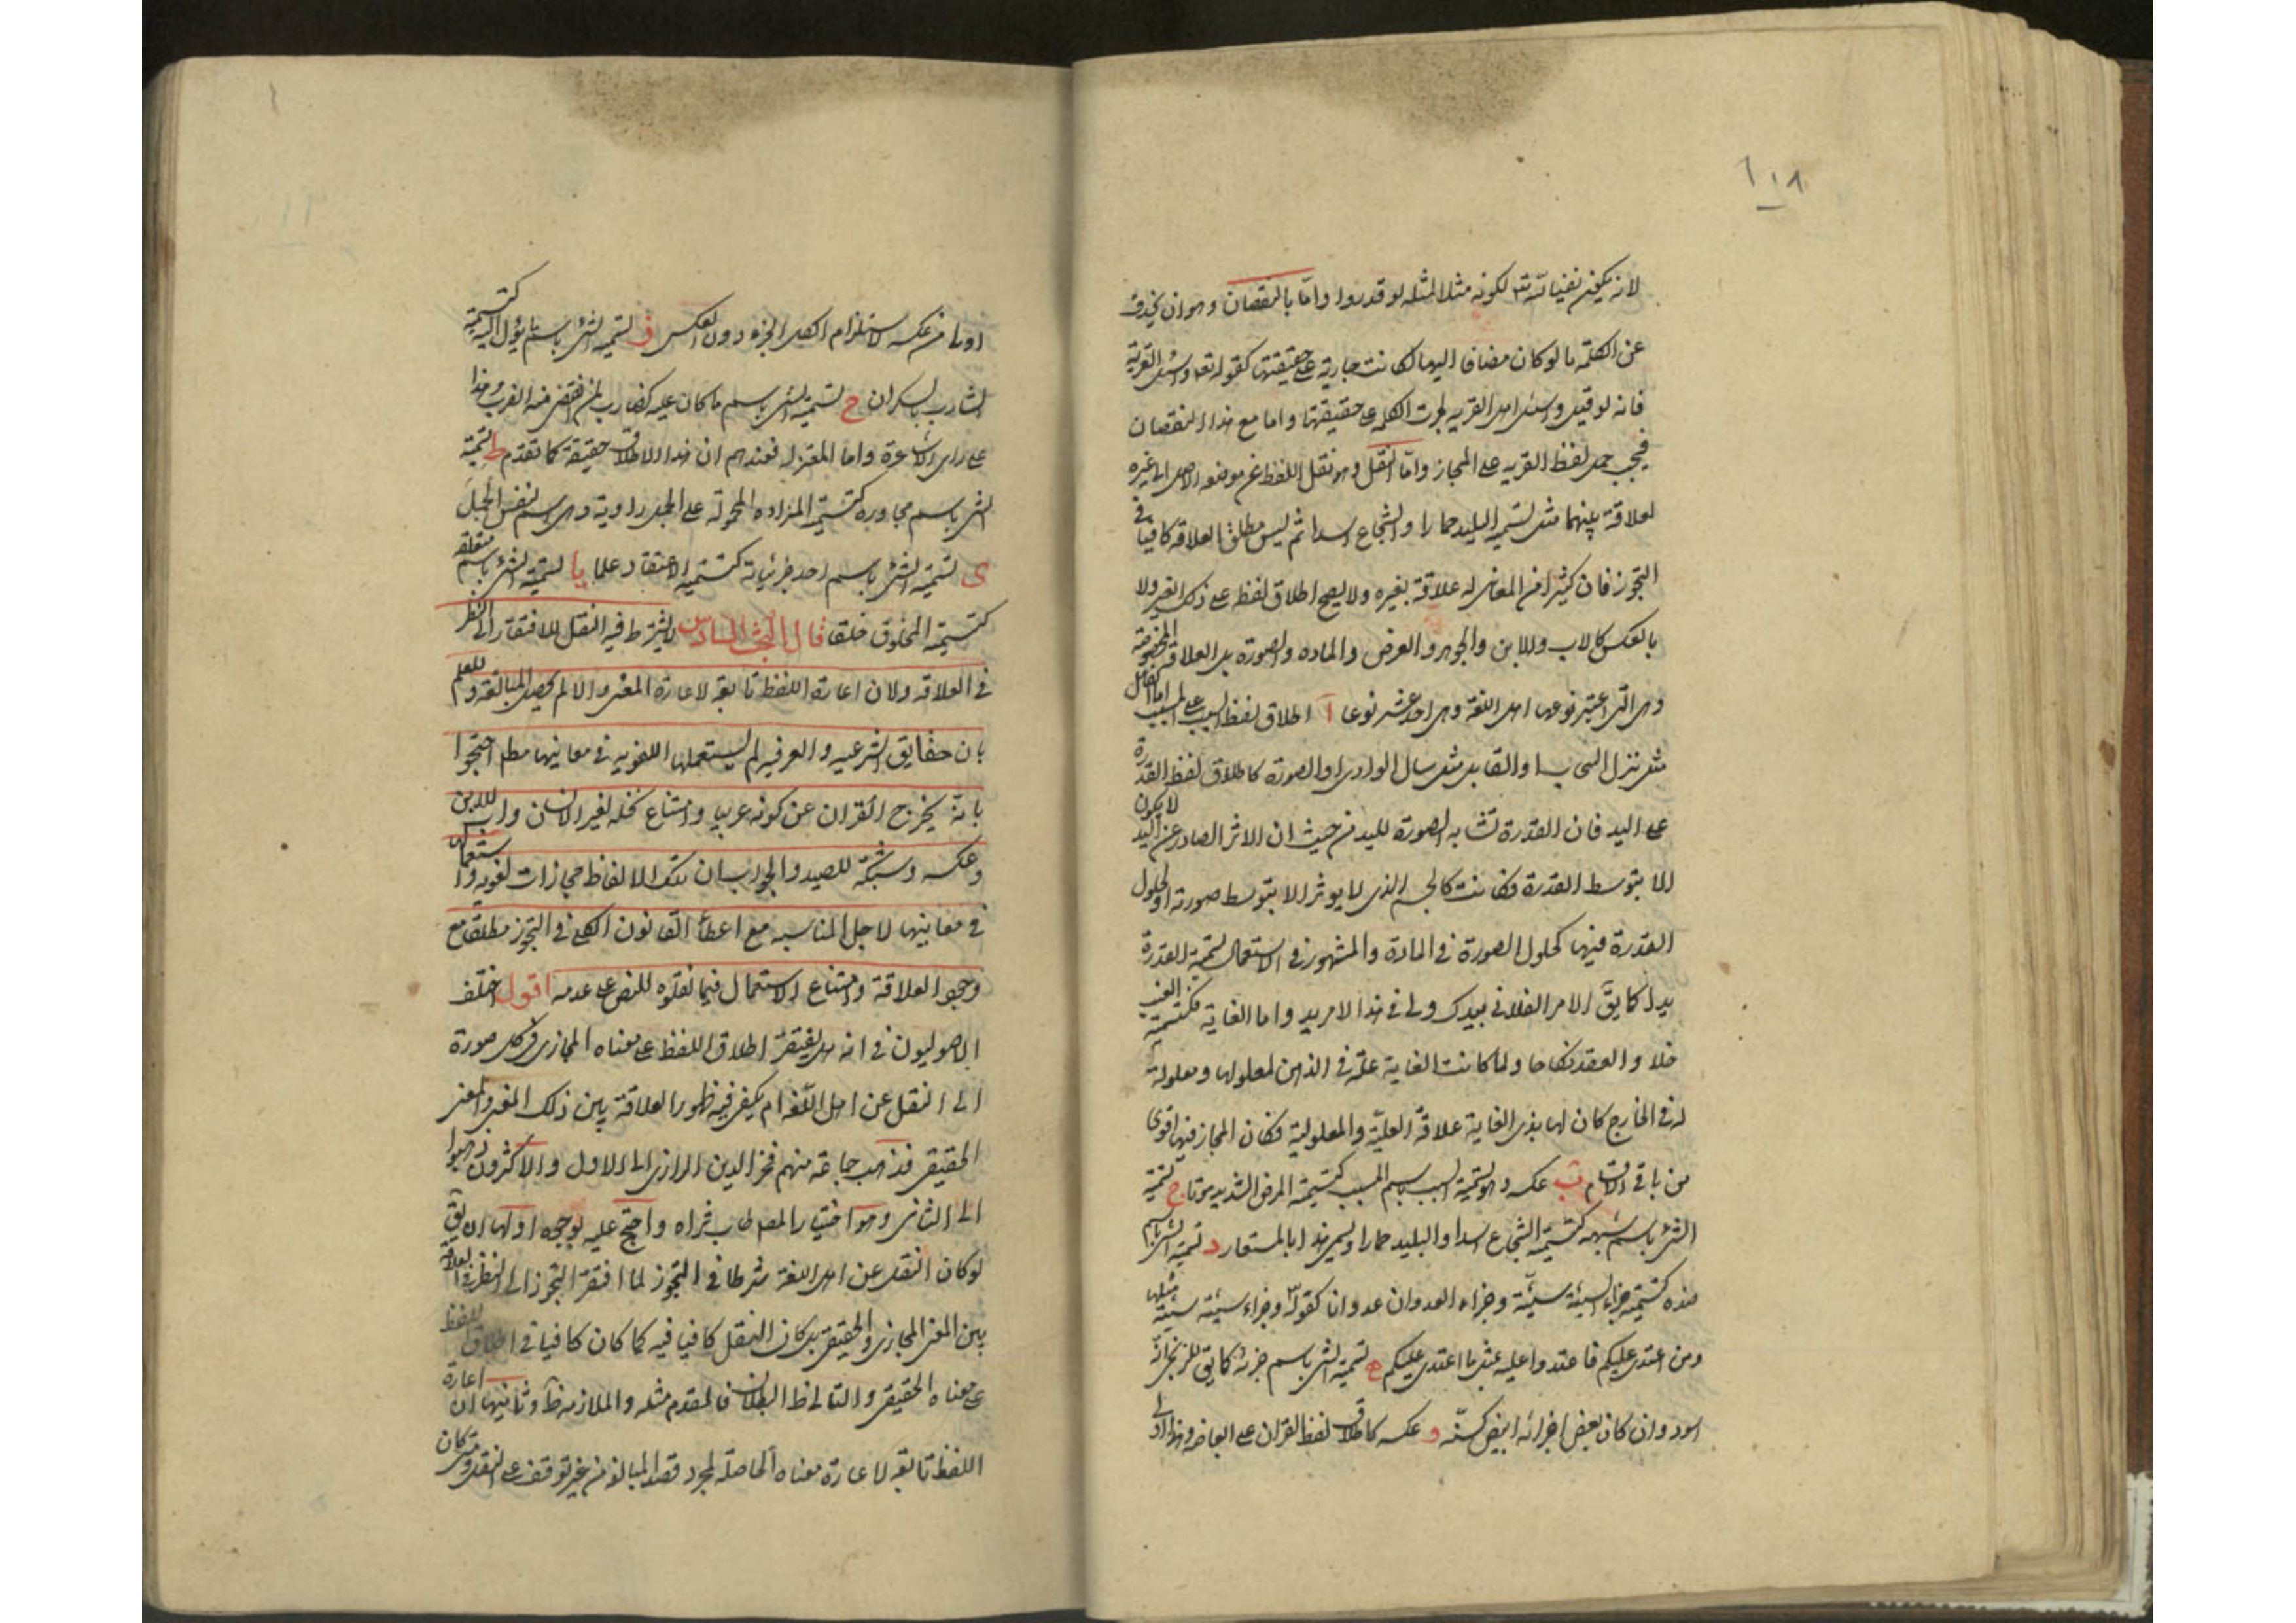 ١٠٨
لانه يكون نفيا لكونه مثلا لمثله لو قدروا واما بالنقصان وهو ان يحذف
عن الكلمة ما لو كان مضافا اليها لكانت جارية على حقيقتها كقوله تعه واسئل القرية
فانه لو قيل واسئل اهل القريه لجرت الكلمة على حقيقتها واما مع هذا النقصان
فيجب حمل لفظ القريه على المجاز واما النقل وهو نقل اللفظ عن موضعه الاصلى الى غيره
لعلاقة بينهما مثل تسمية البليد حمارا والشجاع اسدا ثم ليس مطلق العلاقة كافيا فى
التجوز فان كثيرا من المعانى له علاقة بغيره ولا يصح اطلاق لفظه على ذلك الغير ولا
بالعكس كالاب وللابن والجوهر والعرض والماده والصورة بل العلاقة المخصوصة
وهى التى اعتبر نوعها اهل اللغة وهى احد عشر نوعا آ اطلاق لفظ السبب على المسبب اما الفاعل
مثل نزل السحاب او القابل مثل سال الوادى او الصورة كاطلاق لفظ القدرة
على اليد فان القدرة تشابه الصورة لليد من حيث ان الاثر الصادر عن اليد لا يكون
الا بتوسط القدرة فكانت كالجسم الذى لا يوثر الا بتوسط صورته او لحلول
القدرة فيها كحلول الصورة فى المادة والمشهور فى الاستعمال تسمية القدرة
يدا كما يقَ الامر الفلانى بيدك ولى فى هذا الامر يد واما الغاية فكتسمية العنب
خلا والعقد نكاحا ولما كانت الغاية علة فى الذهن لمعلولها ومعلولة
له فى الخارج كان لها بذى الغاية علاقة العليّة والمعلولية فكان المجاز فيها اقوى
من باقى الاقسام ب عكسه وهو تسمية السبب باسم المسبب كتسمية المرض الشديد موتا ج تسمية
الشئ باسم شبهه كتسمية الشجاع اسدا والبليد حمارا ويسمى هذا بالمستعار د تسمية الشئ باسم
ضده كتسمية جزاء السيئة سيئة وجزاء العدوان عدوانا كقوله وجزاء سيئة سيئة مثلها
ومن اعتدى عليكم فاعتدوا عليه بمثل ما اعتدى عليكم ه تسمية الشئ باسم جزئه كما يق للزنجى انّه
اسود وان كان بعض اجزائه ابيض كسنّه و عكسه كاطلاق لفظ القران على ابعاضه وهذا اولى
اولى من عكسه لاستلزام الكل الجزء دون العكس ز تسمية الشئ باسم ما يؤل اليه كتسمية
الشارب بالسكران ح تسمية الشئ باسم ما كان عليه كضارب لمن انقضى منه الضرب وهذا
على راى الاشاعرة واما المعتزله فعندهم ان هذا الاطلاق حقيقة كما تقدم ط تسمية
الشئ باسم مجاوره كتسمية المزاده المحمولة على الجمل راوية وهى اسم لنفس الجمل
ى تسمية الشئ باسم احد جزئياته كتسمية الاعتقاد علما يا تسمية الشئ باسم متعلقه
كتسمية المخلوق خلقا قال البحث السادس لا يشترط فيه النقل للافتقار الى النظر
فى العلاقه ولان اعارة اللفظ تابعه لاعارة المعنى والا لم يحصل المبالغة وللعلم
بان حقايق الشرعيه والعرفيه لم يستعملها اللغويه فى معانيها مطم احتجوا
بانّه يخرج القران عن كونه عربيا وامتناع نخله لغير الانسان واب للابن
وعكسه وشبكة للصيد والجواب ان تلك الالفاظ مجازات لغويه واستعمال
فى معانيها لاجل المناسبه مع اعطأ القانون الكلى فى التجوز مطلقا مع
وجود العلاقة وامتناع الاستعمال فيما نقلوه للنص على عدمه اقول اختلف
الاصوليون فى انه هل يفتقر اطلاق اللفظ على معناه المجازى فى كل صورة
الى النقل عن اهل اللغه ام يكفى فيه ظهور العلاقة بين ذلك المعنى والمعنى
الحقيقى فذهب جماعة منهم فخر الدين الرازى الى الاول والاكثرون ذهبوا
الى الثانى وهو اختيار المصاب ثراه واحتج عليه بوجوه اولها ان يقَ
لو كان النقل عن اهل اللغة شرطا فى التجوز لما افتقر التجوز الى النظر فى العلاقة
بين المعنى المجازى والحقيقى بل كان النقل كافيا فيه كما كان كافيا فى اطلاق اللفظ
على معناه الحقيقى والتالى ظ البطلان فالمقدم مثله والملازمة ظَ وثانيها ان اعارة
اللفظ تابعه لاعارة معناه الحاصلة لمجرد قصد المبالغه من غير توقف على النقل ومتى كان